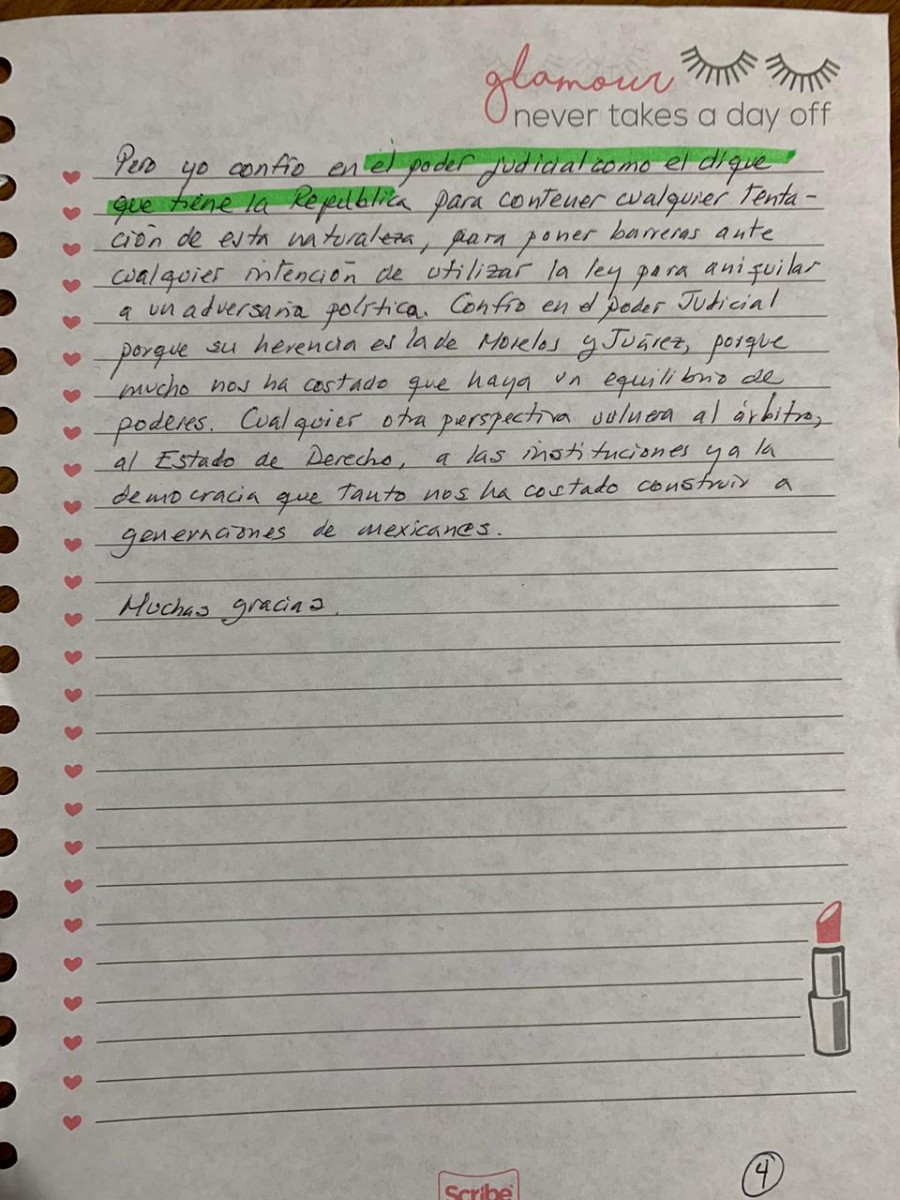 glamour
never takes a day off
Pero yo confío en el poder judicial como el dique
que tiene la República para contener cualquier tenta-
ción de esta naturaleza, para poner barreras ante
cualquier intención de utilizar la ley para aniquilar
a un adversario político. Confío en el poder Judicial
porque su herencia es la de Morelos y Juárez, porque
mucho nos ha costado que haya un equilibrio de
poderes. Cualquier otra perspectiva vulnera al árbitro,
al Estado de Derecho, a las instituciones y a la
democracia que tanto nos ha costado construir a
generaciones de mexicanos.
Muchas gracias.
4
Scribe